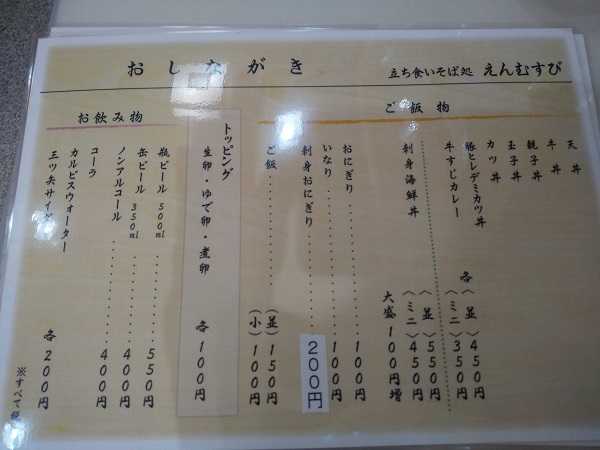 おしながき
立ち食いそば処 えんむすび
ご飯物
天丼
牛丼
親子丼
玉子丼
カツ丼
豚ヒレデミカツ丼
牛すじカレー
各
〈並〉450円
〈ミニ〉350円
刺身海鮮丼
〈並〉550円
〈ミニ〉450円
大盛100円増
おにぎり………100円
いなり………100円
刺身おにぎり………200円
ご飯………(並)150円
(小)100円
トッピング
生卵・ゆで卵・煮卵 各100円
お飲み物
瓶ビール 500ml………550円
缶ビール 350ml………400円
ノンアルコール………400円
コーラ
カルピスウォーター
三ツ矢サイダー
各200円
※すべて税